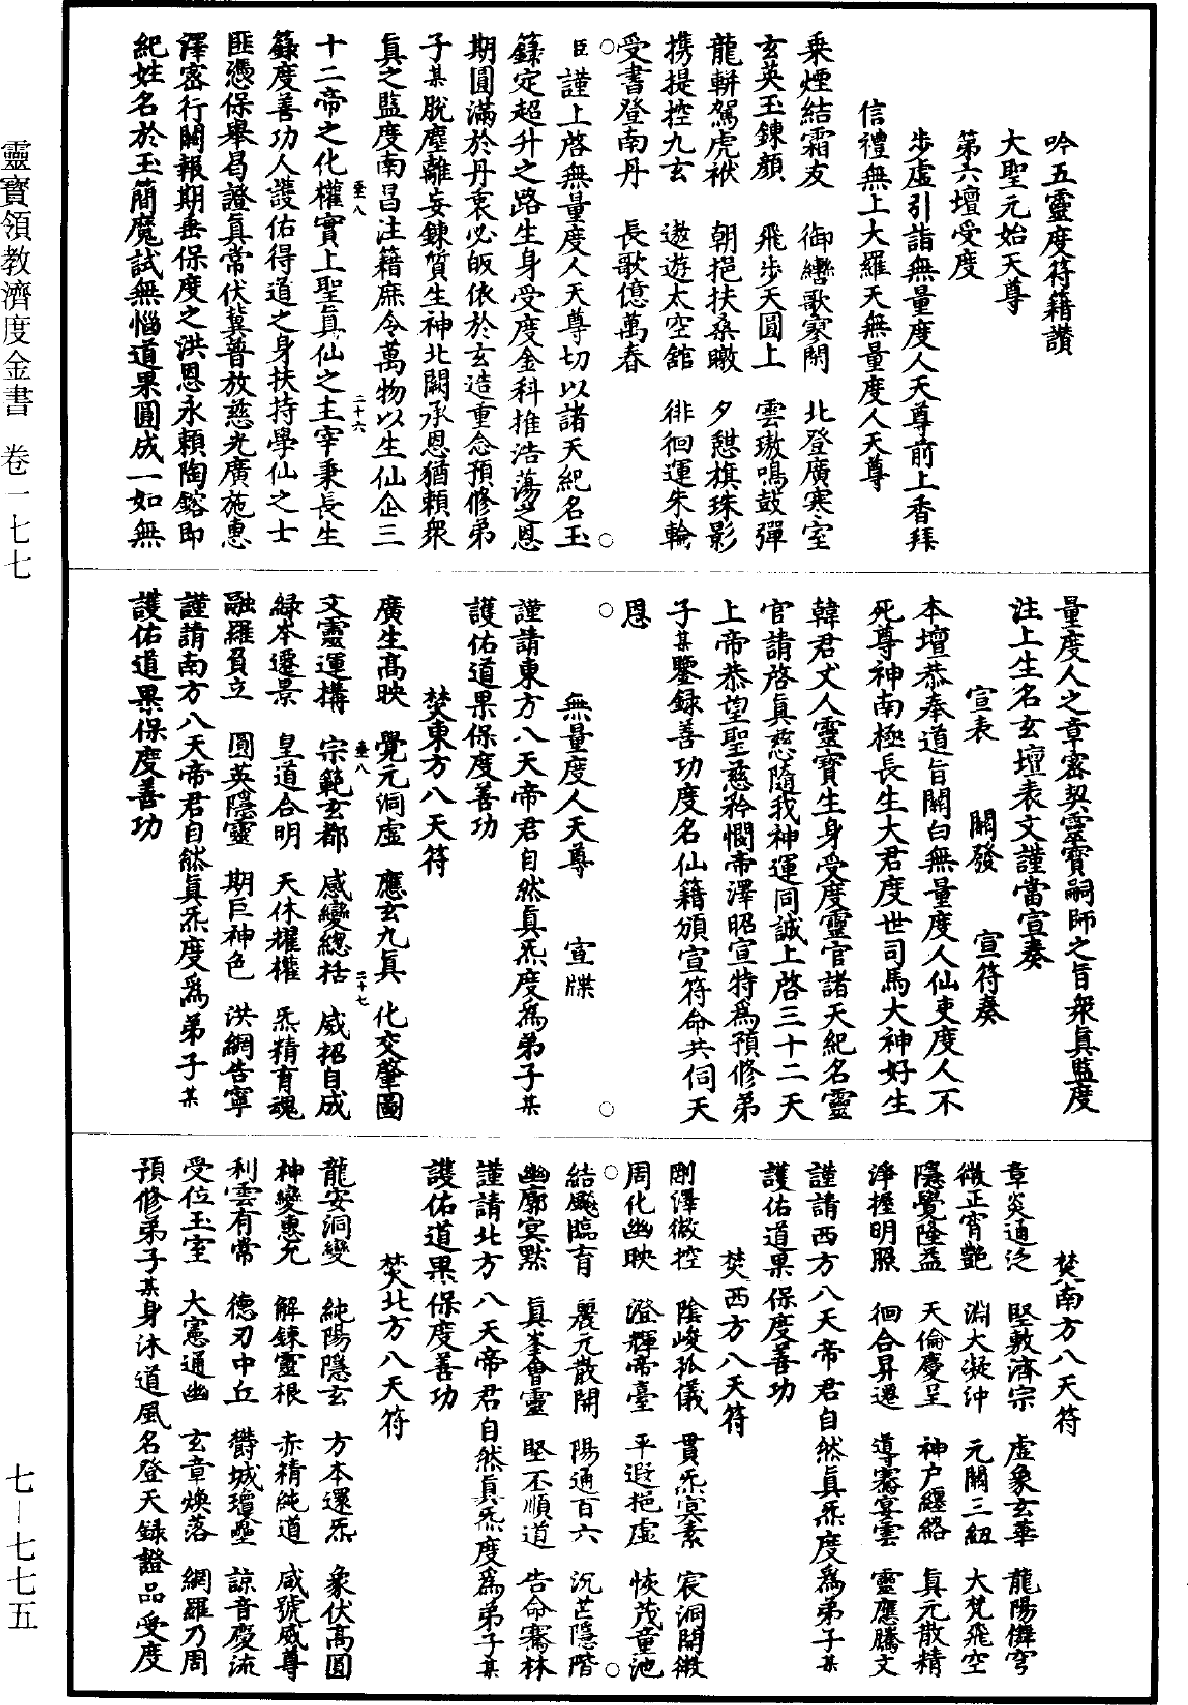 吟五靈度符籍讚
大聖元始天尊
第六壇受度
步虛引詣無量度人天尊前上香拜
信禮無上大羅天無量度人天尊
乘煙結霜友　御巒歌寥閑　北登廣寒室
玄英玉鍊顔　飛步天圓上　雲璈鳴鼓彈
龍軿駕虎袱　朝挹扶桑曒　夕憇旗珠影
携提控九玄　遨遊太空館　徘徊運朱輪
受書登南丹　長歌億萬春
臣謹上啓無量度人天尊切以諸天紀名玉
籙定超升之路生身受度金科推浩蕩之恩
期圓滿於丹衷必皈依於玄造重念預修弟
子某脫塵離妄鍊質生神北闕承恩猶頼衆
眞之監度南昌注籍庶令萬物以生仙企三
十二帝之化權實上聖眞仙之主宰秉長生
籙度善功人護佑得道之身扶持學仙之士
匪憑保舉曷證眞常伏冀普放慈光廣施惠
澤密行關報期垂保度之洪恩永賴陶鎔即
紀姓名於玉簡魔試無惱道果圓成一如無
量度人之章密契靈寶嗣師之旨衆眞監度
注上生名玄壇表文謹當宣奏
宣表　關發　宣符奏
本壇恭奉道旨關白無量度人仙吏度人不
死尊神南極長生大君度世司馬大神好生
韓君丈人靈寶生身受度靈官諸天紀名靈
官請啓眞慈隨我神運同誠上啓三十二天
上帝恭望聖慈矜憫帝澤昭宣特爲預修弟
子某鑒録善功度名仙籍頒宣符命共伺天
恩
無量度人天尊　宣牒
謹請東方八天帝君自然眞炁度爲弟子某
護佑道果保度善功
焚東方八天符
廣生高映　覺元洞虛　應玄九眞　化交肇圖
文靈運搆　宗範玄都　感變緫括　威招自成
緑岑遷景　皇道合明　天休耀權　炁精育魂
融羅負立　圓英隱靈　期巨神色　洪網告寧
謹請南方八天帝君自然眞炁度爲弟子某
護佑道果保度善功
焚南方八天符
章炎通泛　堅敷濟宗　虛象玄華　龍陽儛穹
微正霄艶　淵大凝沖　元關三紐　大梵飛空
隱覺隆益　天倫慶呈　神户纒絡　眞元散精
淨握明照　徊合昇遷　導審宴雲　靈應騰文
謹請西方八天帝君自然眞炁度爲弟子某
護佑道果保度善功
焚西方八天符
剛澤徽控　陰峻孤儀　貫炁寞素　宸洞開徽
周化幽映　澄輝帝臺　平遐挹虛　恢茂童池
結飈臨育　麗元散開　陽通百六　沉芒隱階
幽廓寞默　眞峯會靈　堅丕順道　告命騫林
謹請北方八天帝君自然眞炁度爲弟子某
護佑道果保度善功
焚北方八天符
龍安洞變　純陽隱玄　方本還炁　象伏高圓
神變惠允　解鍊靈根　赤精純道　咸號威尊
利雲有常　德刃中丘　欝城瓊壘　諒音慶流
受位玉室　大憲通幽　玄章煥落　網羅乃周
預修弟子某身沐道風名登天録證品受度
壑八　二十六
壑八　二十七
靈寶領教濟度金書　卷一七七
七—七七五